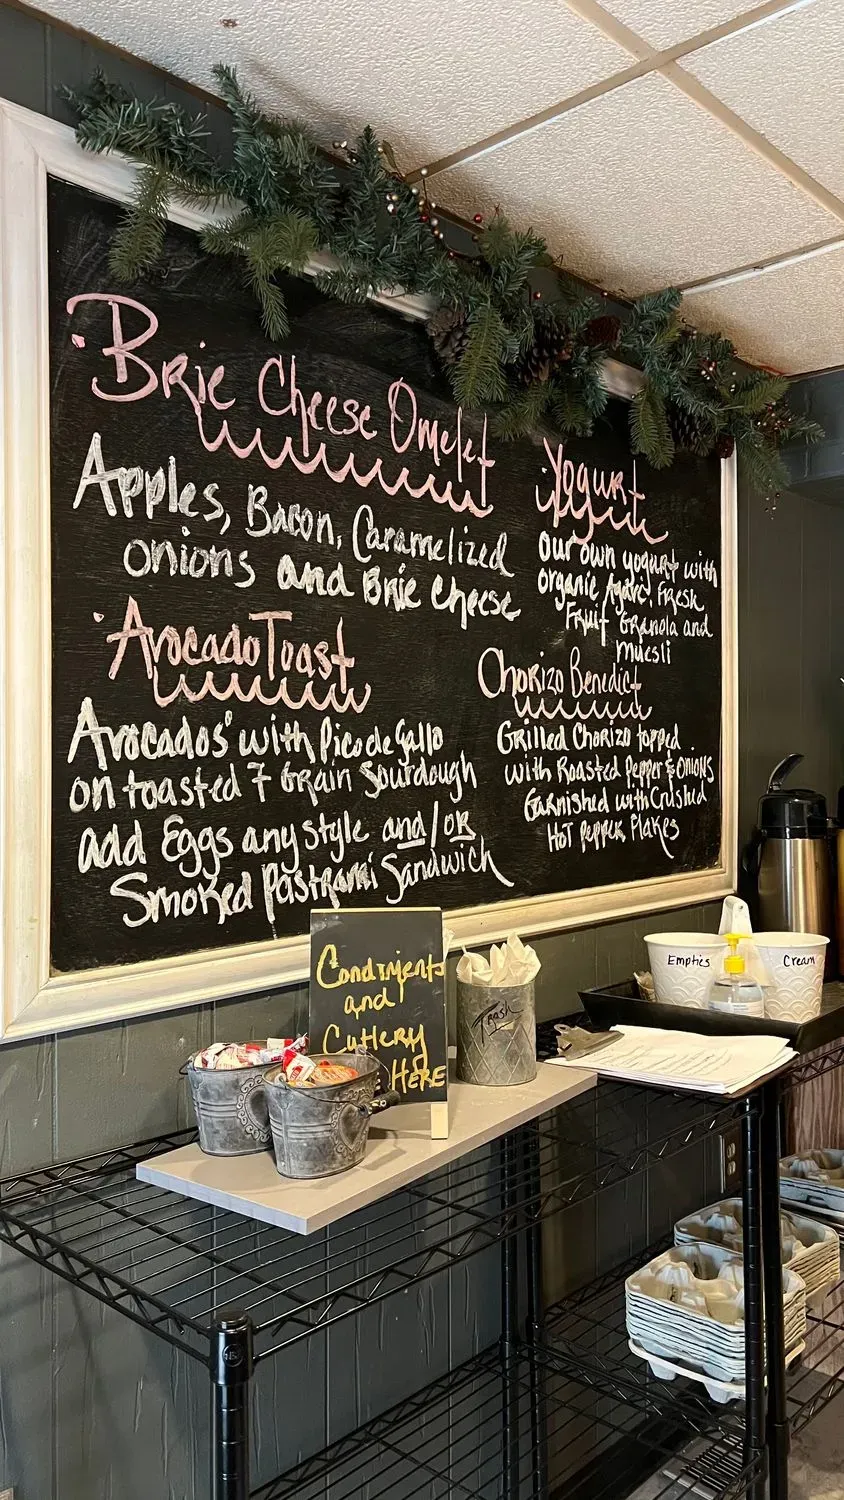 ·Brie Cheese Omelet
Apples, Bacon, Caramelized
onions and Brie Cheese
·Avocado Toast
Avocados' with Pico de Gallo
on toasted 7 Grain Sourdough
add Eggs any style and/or
Smoked Pastrami Sandwich
·Yogurt
Our own yogurt with
organic Agave, Fresh
Fruit Granola and
muesli
Chorizo Benedict
Grilled Chorizo topped
with Roasted Pepper & onions
Garnished with Crushed
Hot Pepper Flakes
Condiments
and
Cutlery
HERE
Trash
Empties
Cream